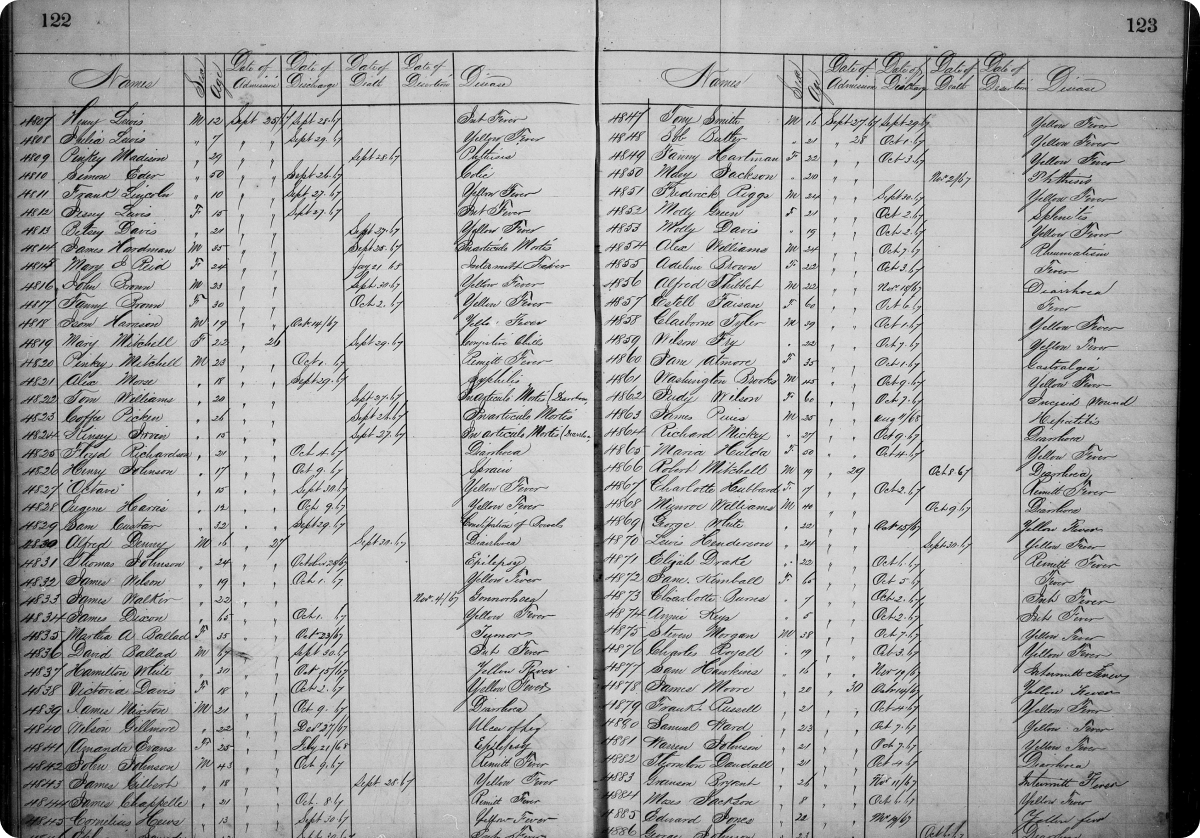 122
Names Sex Age Date of Admission Date of Discharge Date of Death Date of Desertion Disease
4807 Henry Lewis M 12 Sept 25/67 Sept 28.67 Int Fever
4808 Julia Lewis " 7 " " Sept 29.67 Yellow Fever
4809 Pinkey Madison " 29 " " Sept 28.67 Phthisis
4810 Simon Eder " 50 " " Sept 26.67 Colic
4811 Frank Lincoln " 10 " " Sept 27.67 Yellow Fever
4812 Jenny Lewis F 15 " " Sept 27.67 Int Fever
4813 Betsey Davis " 21 " " Sept 27.67 Yellow Fever
4814 James Hardman M 35 " " Sept 25.67 In articulo Mortis
4815 Mary E Reid F 24 " " Jany 21 68 Intermitt Fever
4816 John Brown M 23 " " Sept 30.67 Yellow Fever
4817 Fanny Brown F 30 " " Oct 2.67 Yellow Fever
4818 Isom Harrison M 19 " " Oct 14/67 Yello. Fever
4819 Mary Mitchell F 22 " 26 Sept 29.67 Congestive Chills
4820 Pinkey Mitchell M 23 " " Oct 1. 67 Remitt Fever
4821 Alex Morse " 18 " " Sept 29.67 Syphilis
4822 Tom Williams " 20 " " Sept 27.67 In articulo Mortis (Diarrhoea
4823 Coffee Picken " 26 " " Sept 26.67 In articulo Mortis
4824 Henry Irvin " 15 " " Sept 27.67 In articulo Mortis (Diarrhoea
4825 Floyd Richardson " 21 " " Oct 4.67 Diarrhoea
4826 Henry Johnson " 17 " " Oct 9.67 Sprain
4827 Octave " 15 " " Sept 30.67 Yellow Fever
4828 Eugene Harris " 12 " " Oct 9.67 Yellow Fever
4829 Sam Custar " 32 " " Sept 29.67 Constipation of Bowels
4830 Alfred Denny M 16 " 27 Sept 30.67 Diarrhoea
4831 Thomas Johnson " 24 " " October 24/67 Epilepsy
4832 James Wilson " 19 " " Oct 1.67 Yellow Fever
4833 James Walker " 22 " " Nov. 4/67 Gonnorhoea
4834 James Dixon " 65 " " Oct 1. 67 Yellow Fever
4835 Martha A Ballad F 35 " " Oct 23/67 Tumor
4836 David Ballad M 67 " " Sept 30.67 Int Fever
4837 Hamilton White " 30 " " Oct 15/67 Yellow Fever
4838 Victoria Davis F 18 " " Oct 2.67 Yellow Fever
4839 James Newton M 21 " " Oct 9.67 Diarrhoea
4840 Wilson Gillmore " 22 " " Dec 27/67 Ulcer of Leg
4841 Amanda Evans F 25 " " Feby 21/68 Epilepsy
4842 John Johnson M 43 " " Oct 9.67 Remitt Fever
4843 James Gilbert " 18 " " Sept 28.67 Yellow Fever
4844 James Chappelle " 21 " " Oct. 8.67 Remitt Fever
4845 Cornelius " 13 " " Sept 30.67 Yellow Fever
123
Names Sex Age Date of Admission Date of Discharge Date of Death Date of Desertion Disease
4847 Tony Smith M 16 Sept 27.67 Sept 29.67 Yellow Fever
4848 Butler " 21 " 28 Oct 1.67 Yellow Fever
4849 Fanny Hartman F 22 " " Oct 3.67 Yellow Fever
4850 Mary Jackson " 20 " " Nov 2/67 Phthisis
4851 Frederick Riggs M 24 " " Sept 30.67 Yellow Fever
4852 Molly Green F 21 " " Oct 2.67 Splenitis
4853 Molly Davis " 19 " " Oct 2.67 Yellow Fever
4854 Alex Williams M 24 " " Oct 7.67 Rheumatism
4855 Adeline Brown F 22 " " Oct 3.67 Fever
4856 Alfred M 22 " " Nov 19/67 Diarrhoea
4857 Estell Faisan F 60 " " Oct 6.67 Fever
4858 Claiborne Tyler M 29 " " Oct 1.67 Yellow Fever
4859 Wilson Fry " 22 " " Oct 7.67 Yellow Fever
4860 Jane Atmore F 35 " " Oct 1.67 Gastralgia
4861 Washington Brooks M 45 " " Oct 9.67 Yellow Fever
4862 Judy Wilson F 60 " " Oct 7.67 Incised Wound
4863 James M 25 " " Aug 11/68 Hepatitis
4864 Richard Mickey " 27 " " Oct 9.67 Diarrhoea
4865 Maria Hulda F 50 " " Oct 4.67 Yellow Fever
4866 Robert Mitchell M 19 " 29 Oct 8.67 Diarrhoea
4867 Charlotte Hubbard F 17 " " Oct 2.67 Remitt Fever
4868 Munroe Williams M 40 " " Oct 9.67 Diarrhoea
4869 George White " 22 " " Oct 15/67 Yellow Fever
4870 Lewis Henderson " 24 " " Sept 30.67 Yellow Fever
4871 Elijah Drake " 22 " " Oct 6.67 Remitt Fever
4872 Sam. Kimball F 65 " " Oct 5.67 Fever
4873 Charlotte Burns " 7 " " Oct 2.67 Int Fever
4874 Annie Keys " 5 " " Oct 2.67 Int Fever
4875 Steven Morgan M 38 " " Oct 7.67 Yellow Fever
4876 Charles Royall " 19 " " Oct 3.67 Yellow Fever
4877 Sam Hawkins " 16 " " Nov 9/67 Intermitt Fever
4878 James Moore " 20 " 30 Oct 14/67 Yellow Fever
4879 Frank Russell " 21 " " Oct 4.67 Yellow Fever
4880 Samuel Ward " 23 " " Oct 7.67 Yellow Fever
4881 Warren Johnson " 21 " " Oct 7.67 Yellow Fever
4882 Thornton Dandall " 21 " " Oct 4.67 Diarrhoea
4883 Branson Bryant " 26 " " Nov 11/67 Intermitt Fever
4884 Moses Jackson " 8 " " Oct 6.67 Yellow Fever
4885 Edward Jones " 22 " " Nov 9/67 Yellow Fever
4886 George Johnson " 23 Oct 6.67 Diarrhoea